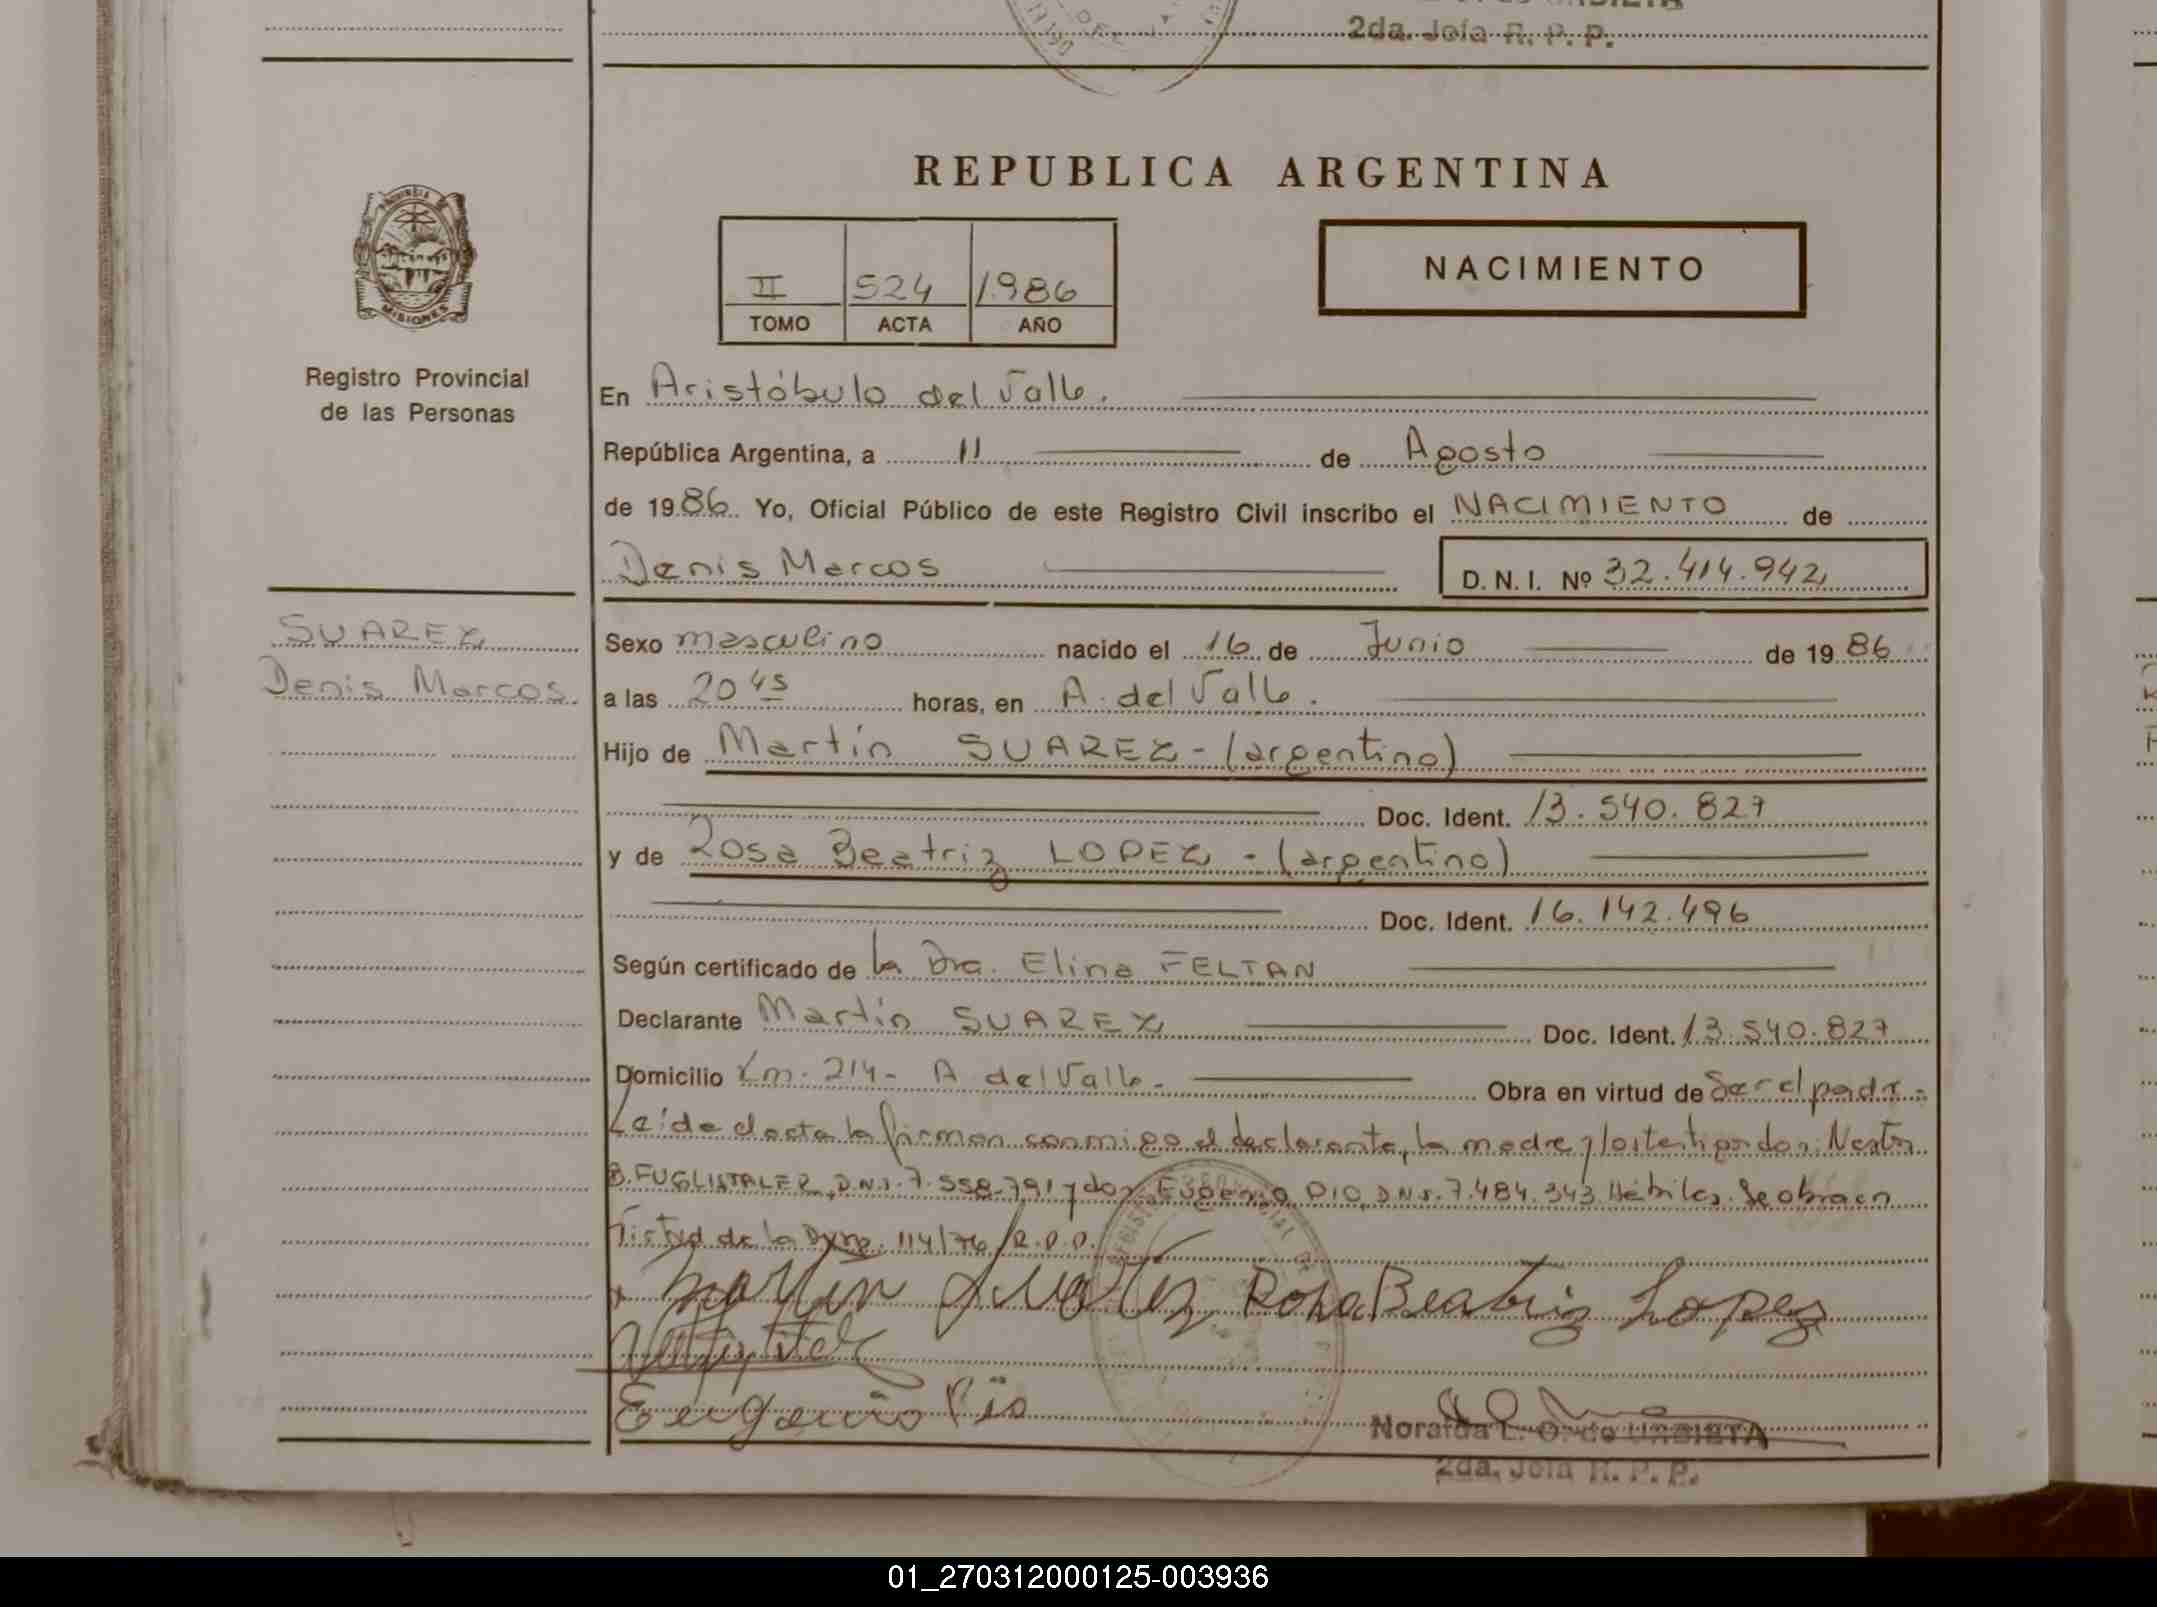 2da. Jefa R. P. P.
REPUBLICA ARGENTINA
PROVINCIA DE
MISIONES
II 524 1986
TOMO ACTA AÑO
NACIMIENTO
Registro Provincial
de las Personas
En Aristóbulo del Valle.
República Argentina, a 11 de Agosto
de 1986. Yo, Oficial Público de este Registro Civil inscribo el NACIMIENTO de
Denis Marcos D. N. I. Nº 32.414.942
SUAREZ
Denis Marcos.
Sexo masculino nacido el 16 de Junio de 1986
a las 20 45 horas, en A. del Valle.
Hijo de Martín SUAREZ - (argentino)
Doc. Ident. 13.540.827
y de Rosa Beatriz LOPEZ - (argentino)
Doc. Ident. 16.142.496
Según certificado de la Dra. Elina FELTAN
Declarante Martín SUAREZ Doc. Ident. 13.540.827
Domicilio Km. 214 - A del Valle - Obra en virtud de Ser el padre.
Leída el acta la firman conmigo el declarante, la madre y los testigos don Nestor
B. FUGLISTALER, D.N.I. 7.558.791 y don Eugenio PIO, D.N.I. 7.484.343 Hábiles. Se obra en
Virtud de la 114/76 R.P.P.
Martin Suarez Rosa Beatriz Lopez
Eugenio Pio
Noraida L. O. de URBIETA
2da. Jefa R. P. P.
01_270312000125-003936